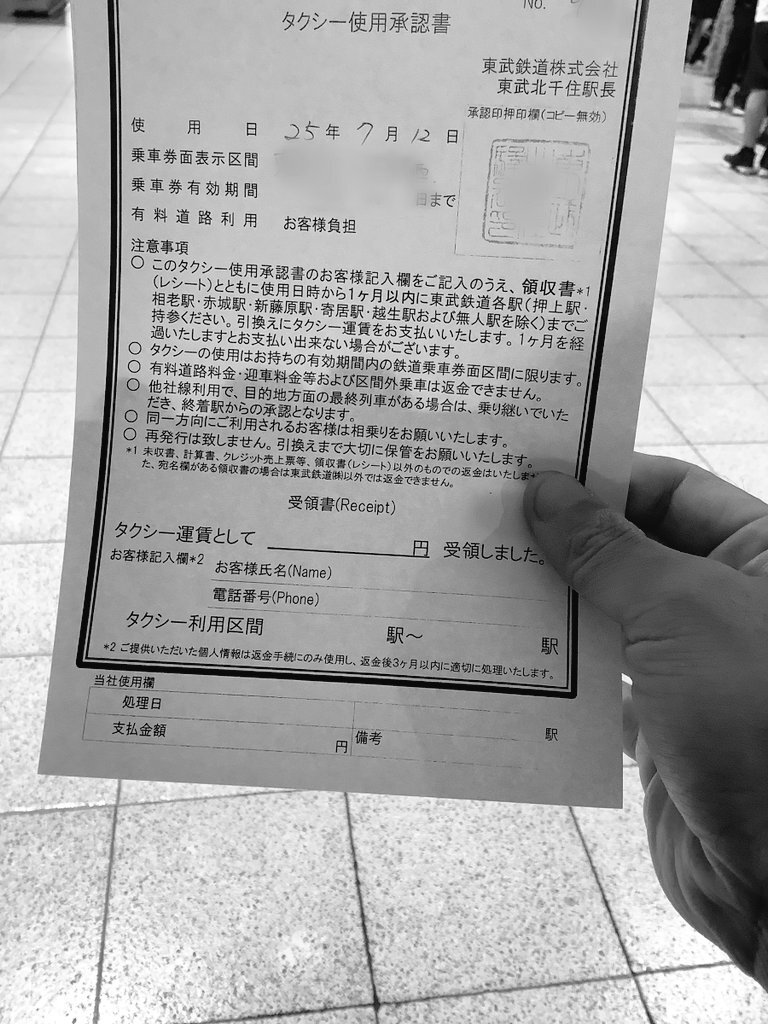 No.
タクシー使用承認書
東武鉄道株式会社
東武北千住駅長
承認印押印欄(コピー無効)
使用日 25年7月12日
乗車券面表示区間
乗車券有効期間 日まで
有料道路利用 お客様負担
注意事項
○ このタクシー使用承認書のお客様記入欄をご記入のうえ、領収書*1
(レシート)とともに使用日時から1ヶ月以内に東武鉄道各駅(押上駅・
相老駅・赤城駅・新藤原駅・寄居駅・越生駅および無人駅を除く)までご
持参ください。引換えにタクシー運賃をお支払いいたします。1ヶ月を経
過いたしますとお支払い出来ない場合がございます。
○ タクシーの使用はお持ちの有効期間内の鉄道乗車券面区間に限ります。
○ 有料道路料金・迎車料金等および区間外乗車は返金できません。
○ 他社線利用で、目的地方面の最終列車がある場合は、乗り継いでいた
だき、終着駅からの承認となります。
○ 同一方向にご利用されるお客様は相乗りをお願いいたします。
○ 再発行は致しません。引換えまで大切に保管をお願いいたします。
*1 未収書、計算書、クレジット売上票等、領収書(レシート)以外のものでの返金はいたしま
た、宛名欄がある領収書の場合は東武鉄道㈱以外では返金できません。
受領書(Receipt)
タクシー運賃として 円 受領しました。
お客様記入欄*2 お客様氏名(Name)
電話番号(Phone)
タクシー利用区間 駅～ 駅
*2 ご提供いただいた個人情報は返金手続にのみ使用し、返金後3ヶ月以内に適切に処理いたします。
当社使用欄
処理日 駅
支払金額 円 備考